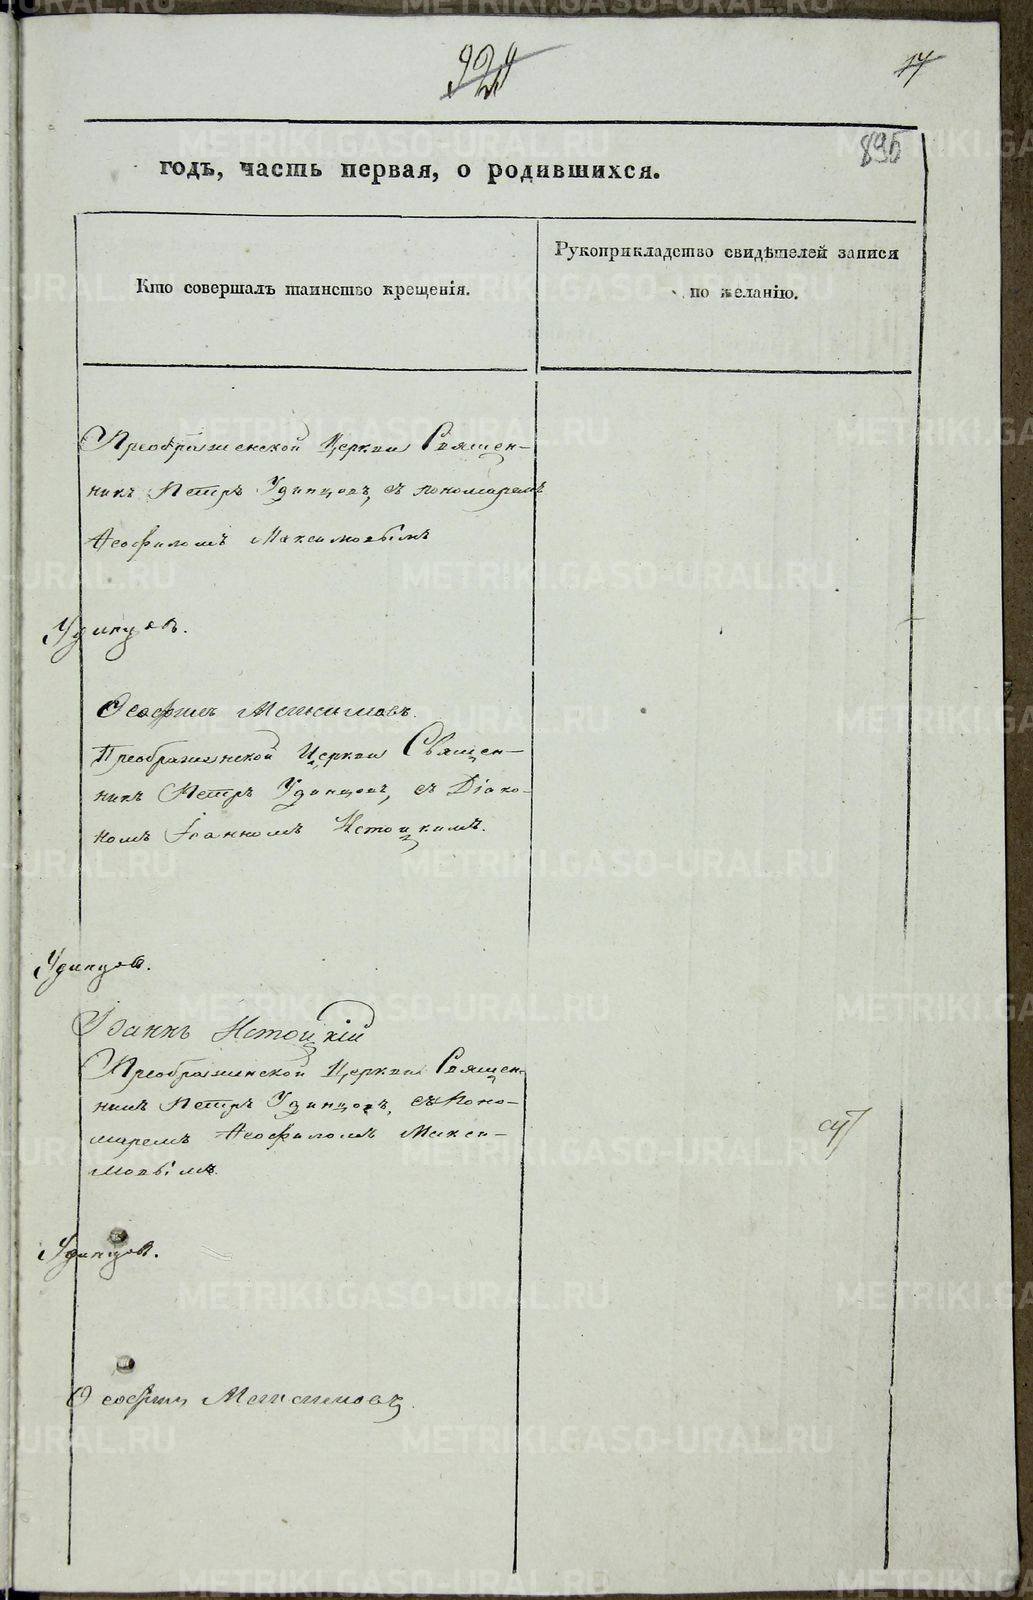 924
17
895
годъ, часть первая, о родившихся.
Кто совершалъ таинство крещенія.
Рукоприкладство свидѣтелей записи
по желанію.
Преображенской Церкви Священ-
никъ Петръ Удинцовъ, съ пономаремъ
Ѳеофиломъ Максимовымъ
Удинцовъ.
Ѳеофилъ Максимовъ.
Преображенской Церкви Священ-
никъ Петръ Удинцовъ, съ Діако-
номъ Іоанномъ Истоцкимъ.
Удинцовъ.
Іоаннъ Истоцкій
Преображенской Церкви Священ-
никъ Петръ Удинцовъ, съ Поно-
маремъ Ѳеофиломъ Макси-
мовымъ.
Удинцовъ.
Ѳеофилъ Максимовъ
METRIKI.GASO-URAL.RU